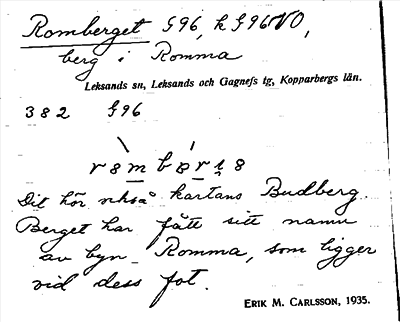 Romberget § 96, k § 96 VO,
berg i Romma
Leksands sn, Leksands och Gagnefs tg, Kopparbergs län.
382 § 96
Dit hör också kartans Budberg.
Berget har fått sitt namn
av byn Romma, som ligger
vid dess fot.
ERIK M. CARLSSON, 1935.